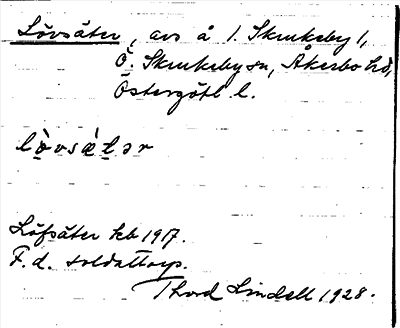 Lövsäter, avs å 1. Skruksby 1,
Ö. Skrukeby sn, Åkerbo hd,
Östergötl l.
lòvsætər
Löfsäter kb 1917.
F.d. soldattorp.
Thord Lindell 1928.